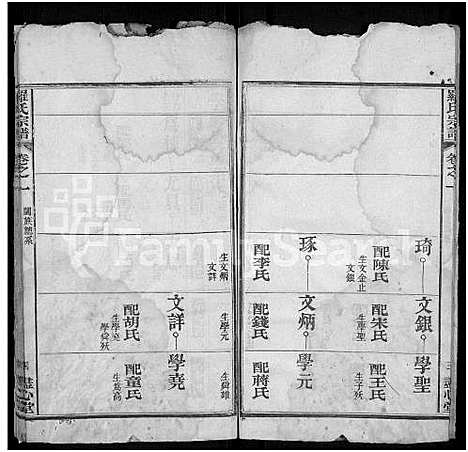 羅氏宗譜
卷之一
琦
配陳氏
生文金止
文銀
文銀
配宋氏
生學聖
學聖
配王氏
生子殀
琢
配李氏
生文炳
文詳
文炳
配錢氏
生學元
學元
配蔣氏
生舜雄
文詳
配胡氏
生學堯
學舜殀
學堯
配童氏
羅氏宗譜
卷之一
FamilySearch